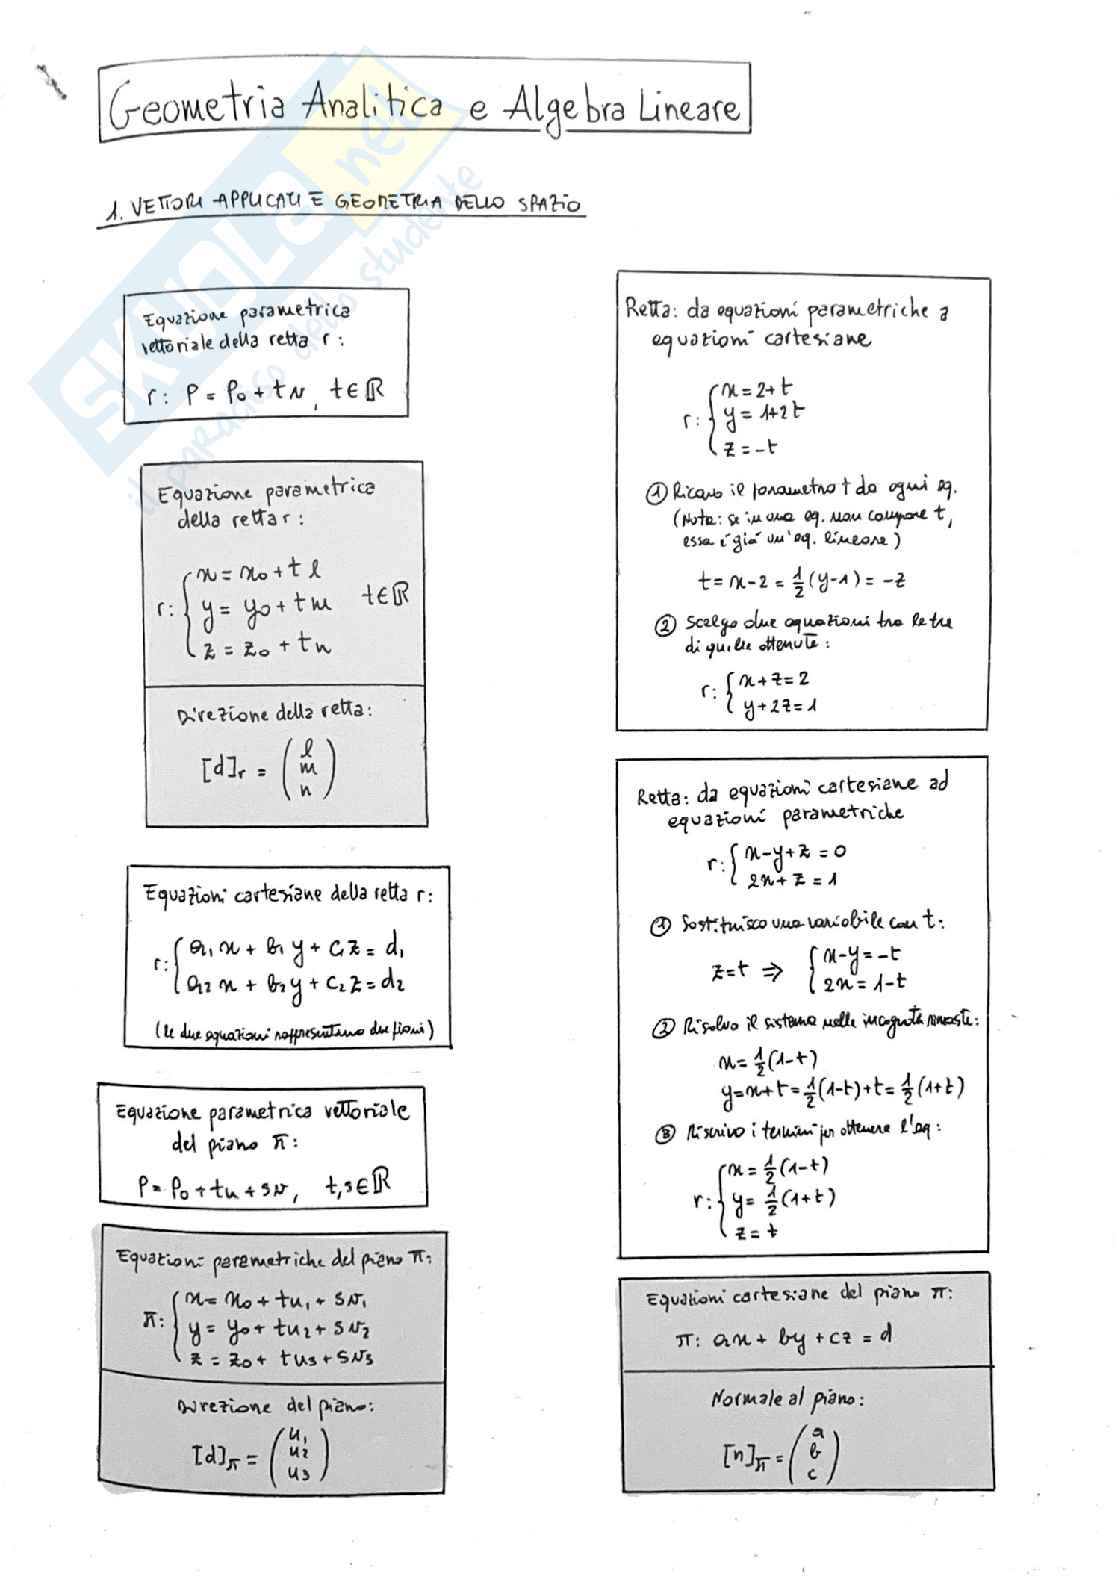 Geometria Analitica e Algebra Lineare
1. VETTORI APPLICATI E GEOMETRIA DELLO SPAZIO
Equazione parametrica
vettoriale della retta r:
r: P = P₀ + tv, t∈ℝ
Equazione parametrica
della retta r:
r: { x = x₀ + t l
y = y₀ + t m t∈ℝ
z = z₀ + t n
Direzione della retta:
[d]ᵣ = ( l
m
n )
Equazioni cartesiane della retta r:
r: { a₁x + b₁y + c₁z = d₁
a₂x + b₂y + c₂z = d₂
(le due equazioni rappresentano due piani)
Equazione parametrica vettoriale
del piano π:
P = P₀ + tu + sv, t,s∈ℝ
Equazioni parametriche del piano π:
π: { x = x₀ + tu₁ + sv₁
y = y₀ + tu₂ + sv₂
z = z₀ + tu₃ + sv₃
Direzione del piano:
[d]π = ( u₁
u₂
u₃ )
Retta: da equazioni parametriche a
equazioni cartesiane
r: { x = 2+t
y = 1+2t
z = -t
① Ricavo il parametro t da ogni eq.
(Nota: se in una eq. non compare t,
essa è già un'eq. lineare)
t = x-2 = ½(y-1) = -z
② Scelgo due equazioni tra le tre
di quelle ottenute:
r: { x+z=2
y+2z=1
Retta: da equazioni cartesiane ad
equazioni parametriche
r: { x-y+z=0
2x+z=1
① Sostituisco una variabile con t:
z=t ⇒ { x-y=-t
2x=1-t
② Risolvo il sistema nelle incognite rimaste:
x=½(1-t)
y=x+t=½(1-t)+t=½(1+t)
③ Riscrivo i termini per ottenere l'eq:
r: { x=½(1-t)
y=½(1+t)
z=t
Equazioni cartesiane del piano π:
π: ax + by + cz = d
Normale al piano:
[n]π = ( a
b
c )
SKUOLA.net
il paradiso dello studente